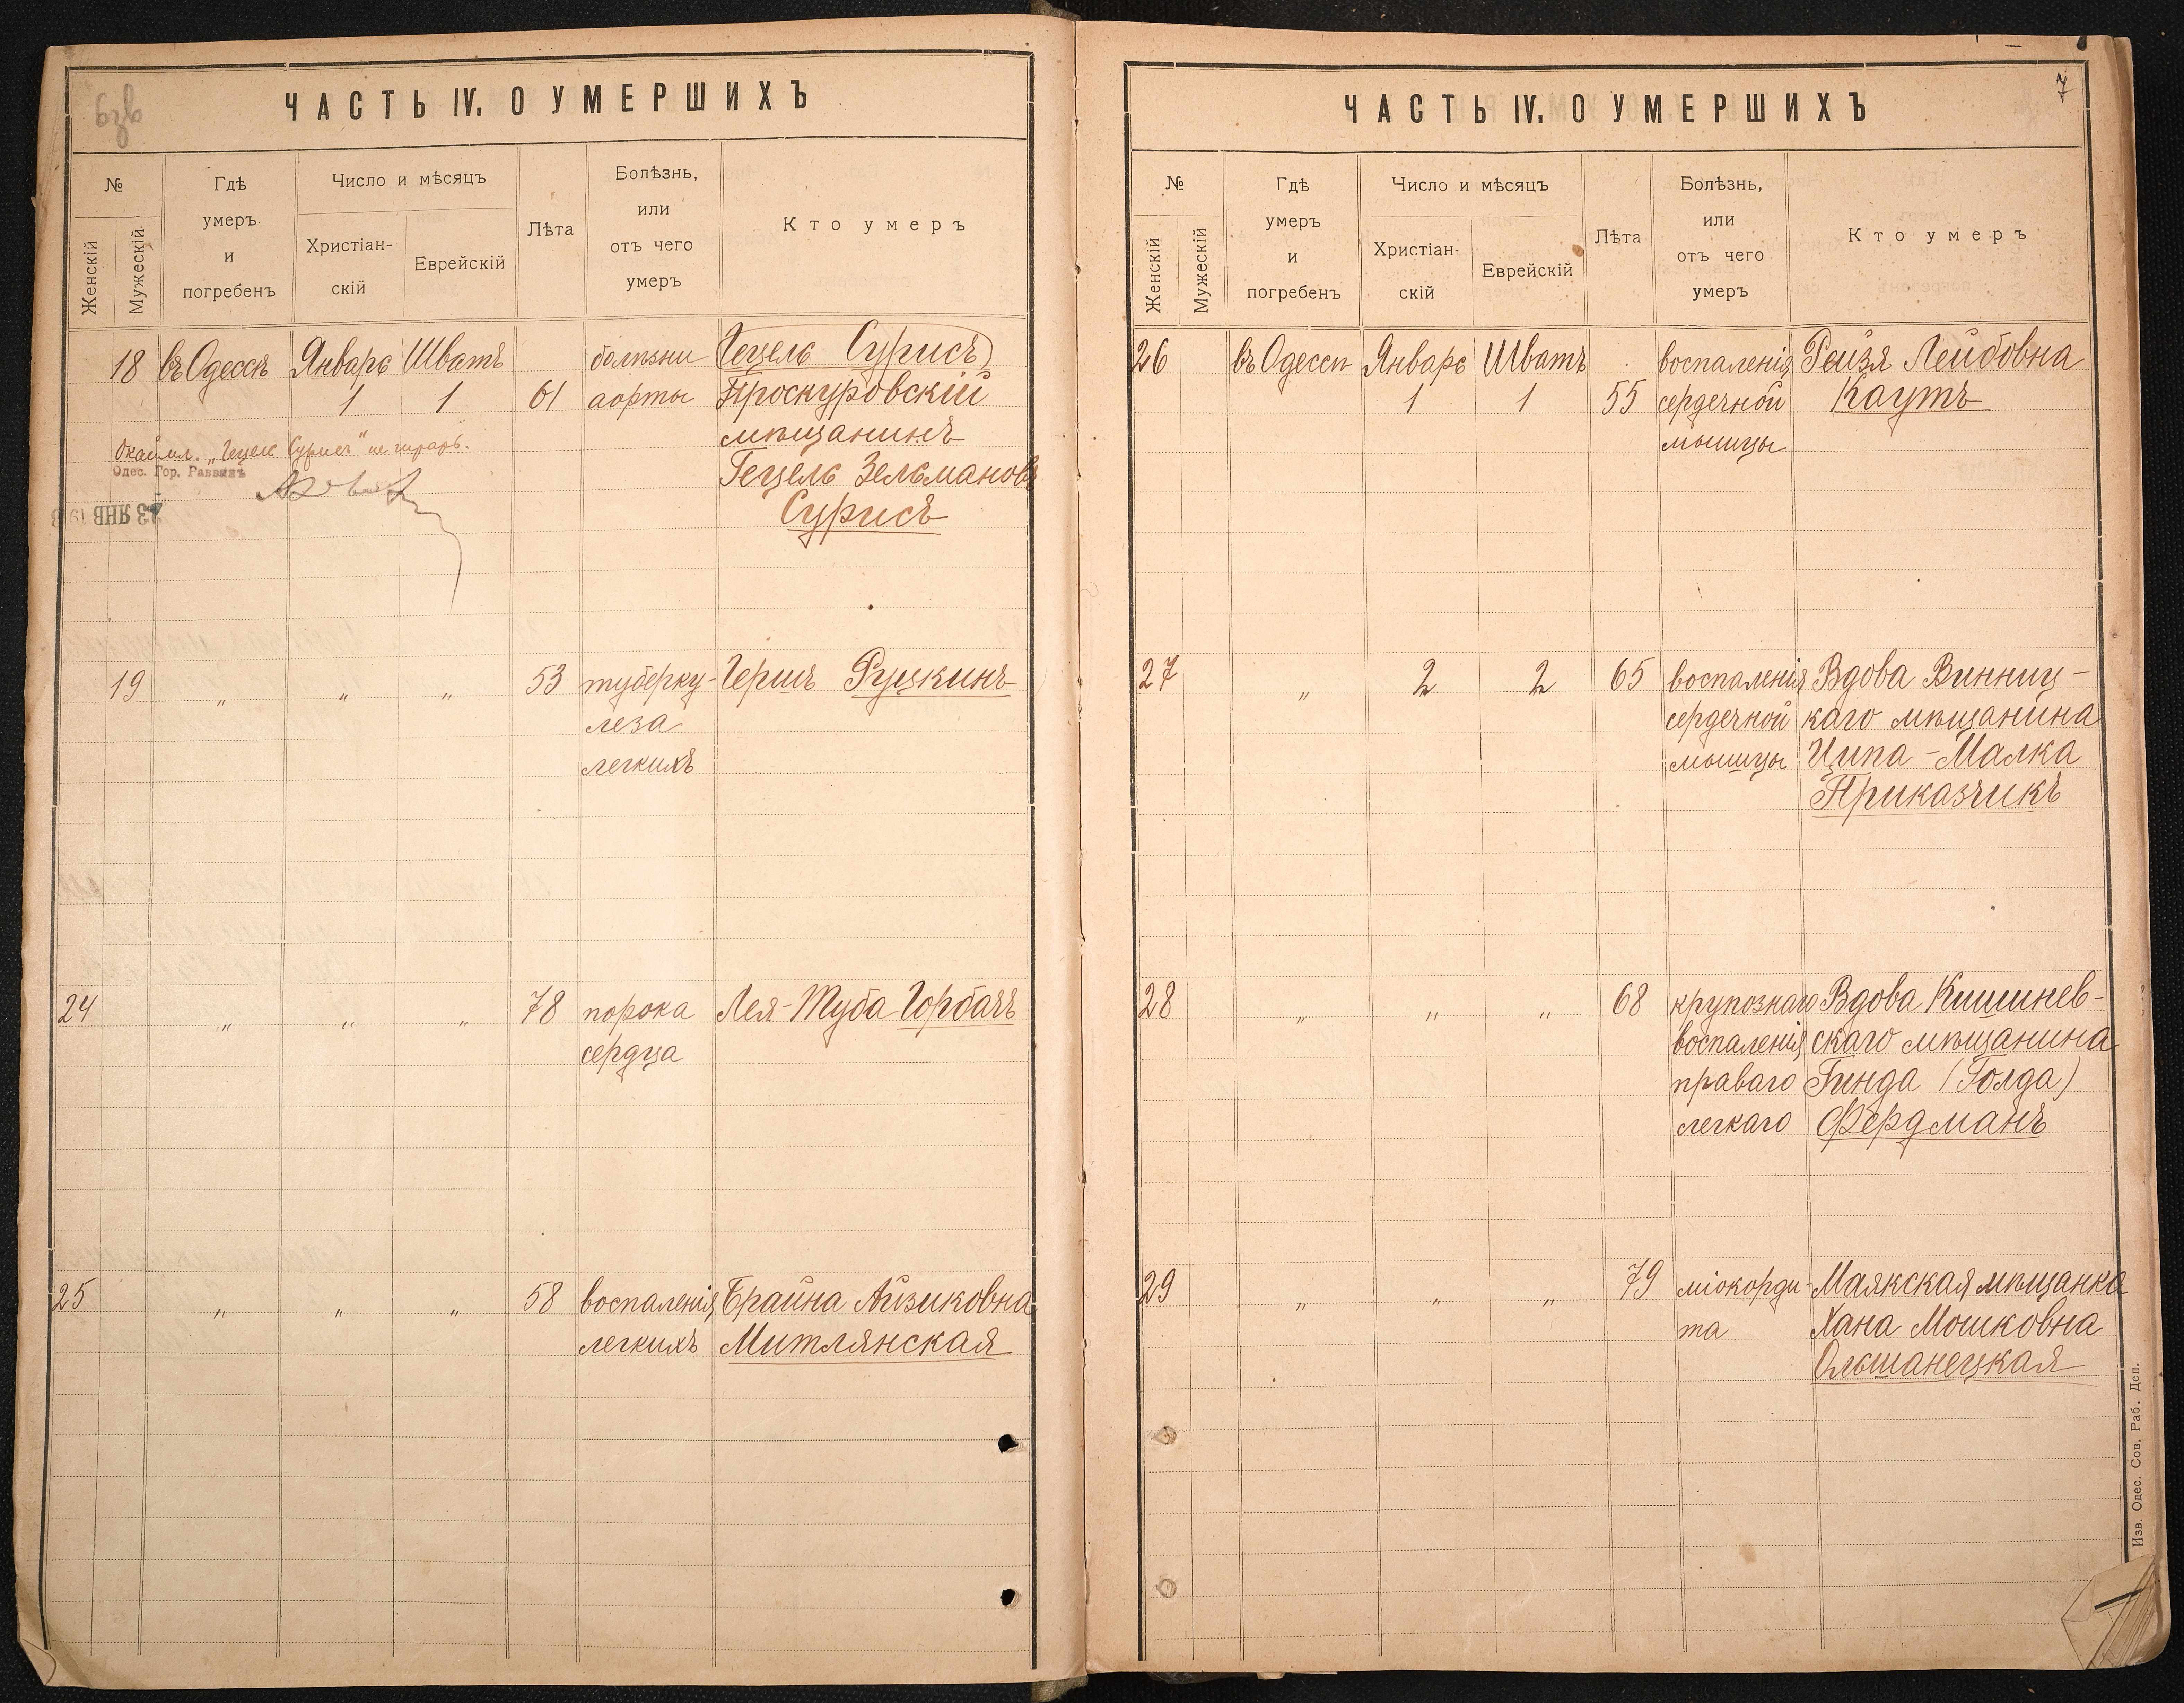 ЧАСТЬ IV. О УМЕРШИХЪ
№
Женскій
Мужескій
Гдѣ
умеръ
и
погребенъ
Число и мѣсяцъ
Христіан-
скій
Еврейскій
Лѣта
Болѣзнь,
или
отъ чего
умеръ
Кто умеръ
18 въ Одессѣ Январе Шватъ болѣзни (Гецель Сурисъ)
1 1 61 аорты Проскуровскій
мѣщанинъ
Гецель Зельмановъ
Сурисъ
"Гецель Сурисъ" не
Одес. Гор. Раввинъ
23 ЯНВ 191
19 " " " 53 туберку- Гершъ Руцкинъ
леза
легкихъ
24 " " " 78 порока Лея-Туба Горбачъ
сердца
25 " " " 58 воспаленія Брайна Айзиковна
легкихъ Митлянская
7
ЧАСТЬ IV. О УМЕРШИХЪ
№
Женскій
Мужескій
Гдѣ
умеръ
и
погребенъ
Число и мѣсяцъ
Христіан-
скій
Еврейскій
Лѣта
Болѣзнь,
или
отъ чего
умеръ
Кто умеръ
26 въ Одессѣ Январе Шватъ воспаленія Рейзя Лейбовна
1 1 55 сердечной Каутъ
мышцы
27 " 2 2 65 воспаленія Вдова Винниц-
сердечной каго мѣщанина
мышцы Ципа-Малка
Приказчикъ
28 " " " 68 крупознаго Вдова Кишинев-
воспаленія скаго мѣщанина
праваго Гинда (Голда)
легкаго Фердманъ
29 " " " 79 міокорди- Маякская мѣщанка
та Хана Мошковна
Ольшанецкая
Изв. Одес. Сов. Раб. Деп.